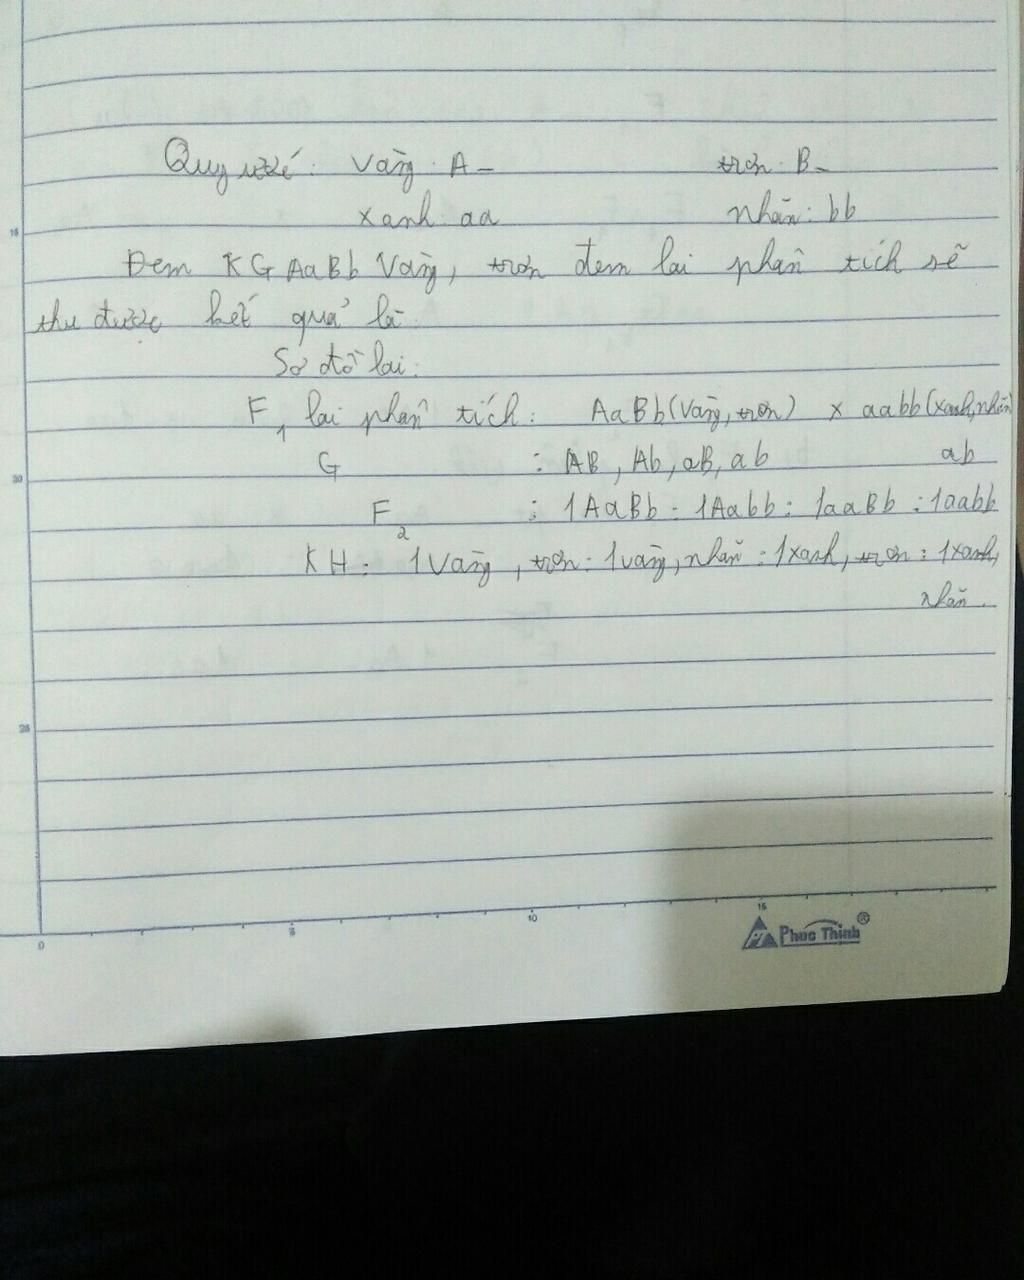 Quy ước: Vàng: A_ trơn: B_
xanh: aa nhăn: bb
Đem KG AaBb Vàng, trơn đem lai phân tích sẽ
thu được kết quả là
Sơ đồ lai:
F1 lai phân tích: AaBb (Vàng, trơn) x aabb (xanh, nhăn)
G : AB, Ab, aB, ab ab
F2 : 1AaBb : 1Aabb : 1aaBb : 1aabb
KH: 1 Vàng, trơn : 1 vàng, nhăn : 1 xanh, trơn : 1 xanh,
nhăn.
15
20
25
0 5 10 15
Phuc Thinh ®